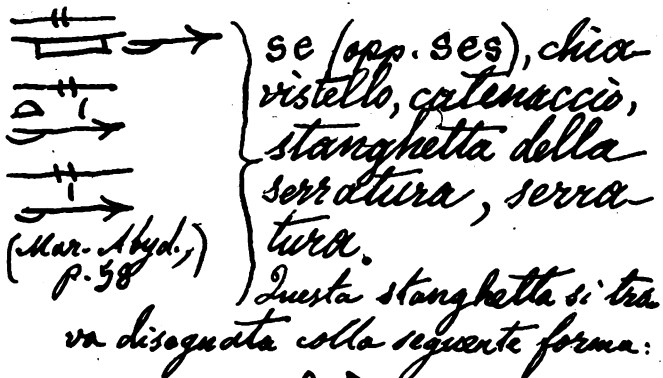 se (opp. ses), chia-
vistello, catenaccio,
stanghetta della
serratura, serra-
tura.
(Mar. Abyd.,
p. 58)
Questa stanghetta si tro-
va disegnata colla seguente forma: